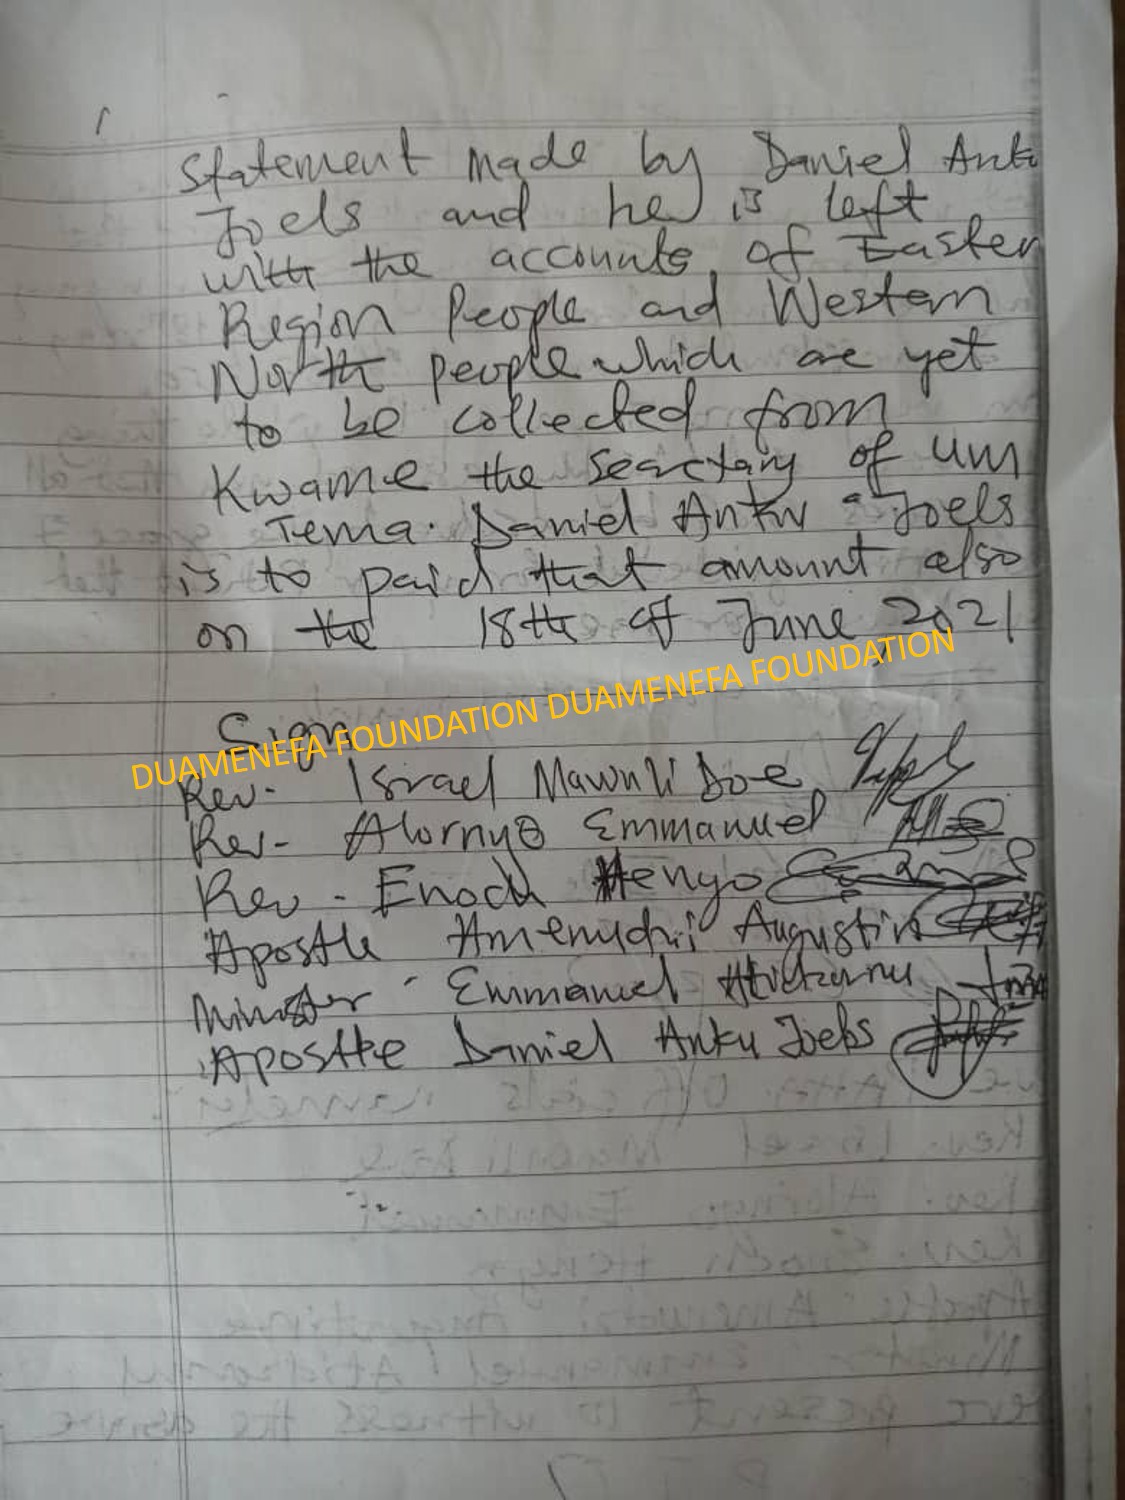 Statement made by Daniel Anku
Joels and he is left
with the accounts of Eastern
Region People and Western
North people which are yet
to be collected from
Kwame the Secretary of UM
Tema. Daniel Anku Joels
is to paid that amount also
on the 18th of June, 2021
Sign
DUAMENEFA FOUNDATION DUAMENEFA FOUNDATION
Rev. Israel Mawuli Doe
Rev- Alornyo Emmanuel
Rev. Enoch Henyo
Apostle Amenudzi Augustin
Minister Emmanuel
Apostle Daniel Anku Joels